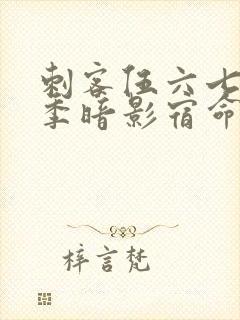 刺客伍六七
季暗影宿命
梓言梵